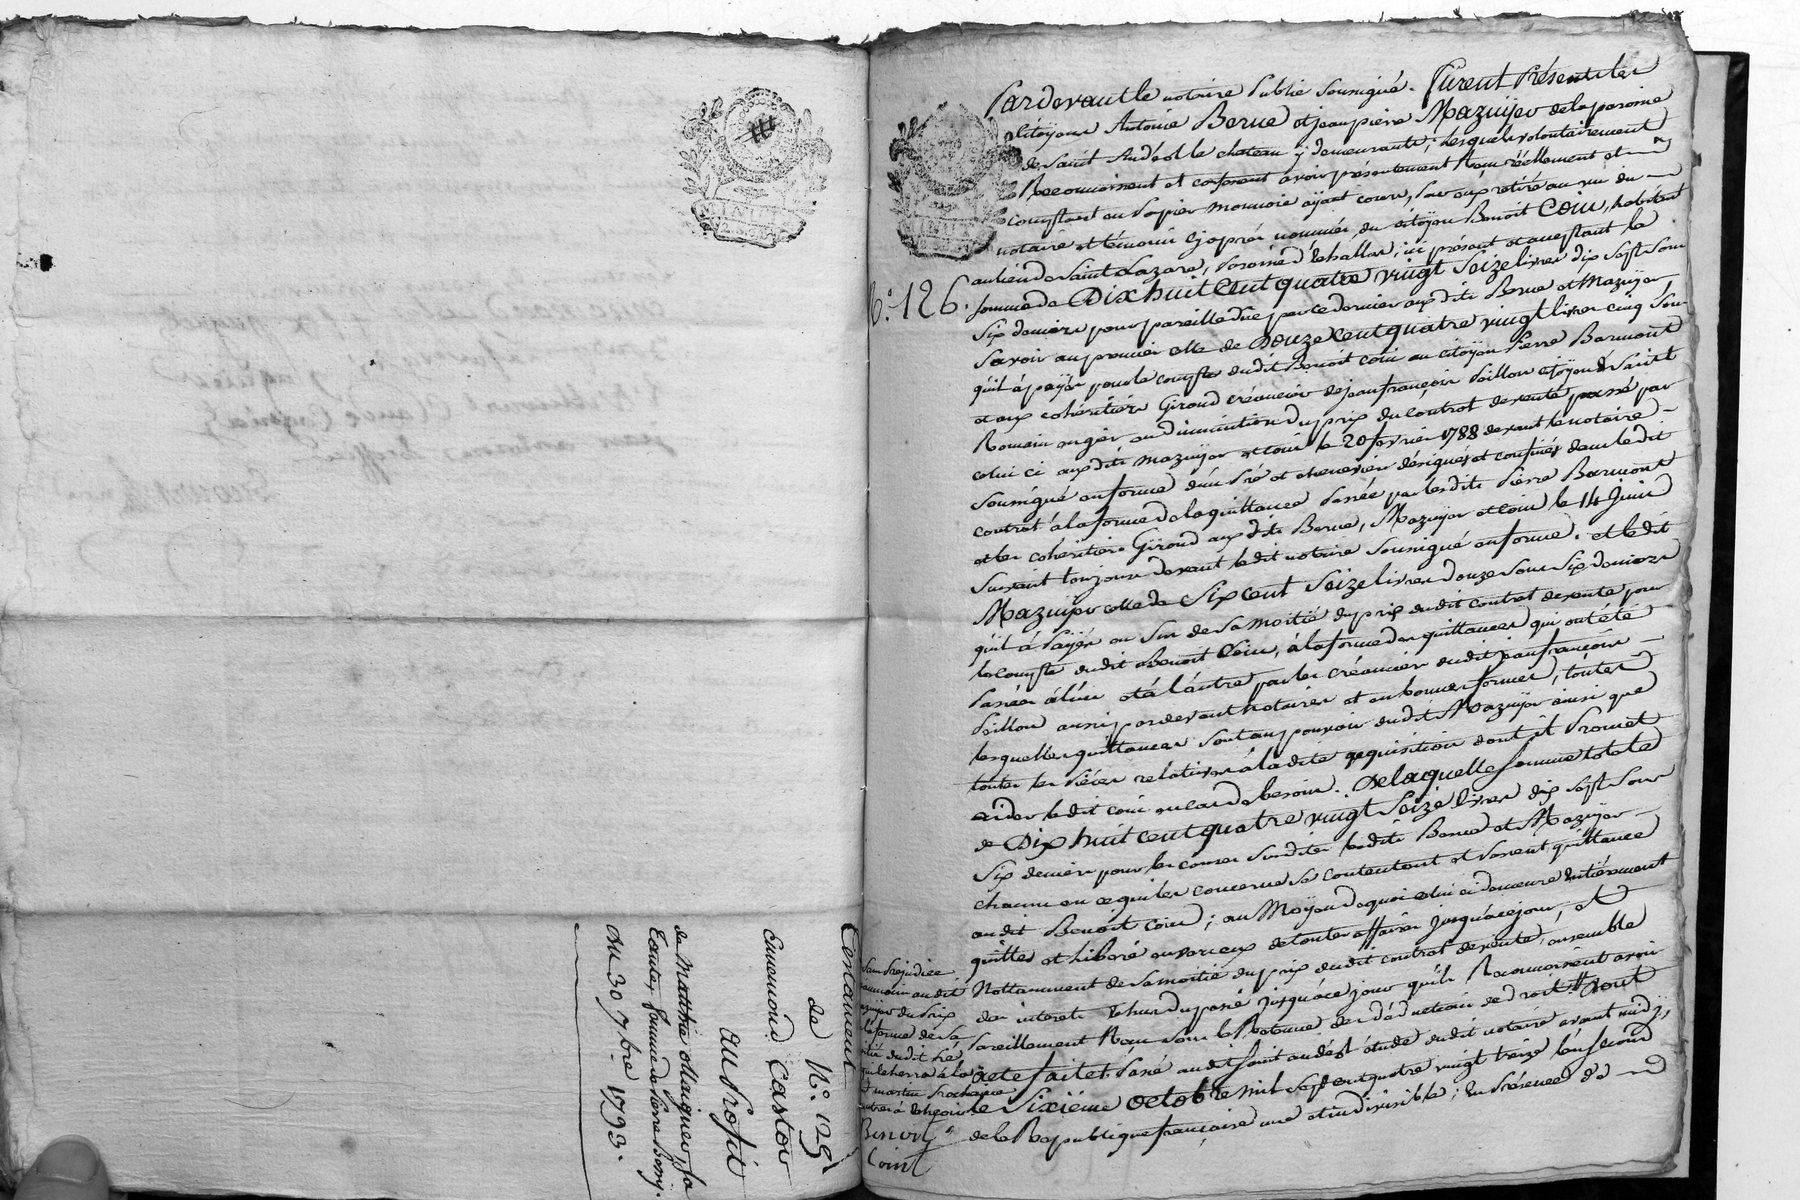 Testament
de N.º 125
Eunemond Castor
au Profit
de Matthie Maignier, sa
Tante, femme de Pierre Bony.
du 30 7bre 1793.
N.º 126.
Pardevant le notaire Public soussigné. Furent Présents les
Citöyens Antoine Berne et jean pierre Mazuyer de la paroisse
de Saint Andéol le chateau y demeurants; lesquels volontairement
Reconnoissent et confessent avoir présentement Reçu réellement et
comptant en Papier monnoie ayant cours, par eux retiré au vu du
notaire et témoins cy après nommés, du citöyen Benoît Coin, habitant
au lieu de Saint Lazare, Paroisse d'Echallas, ici présent et acceptant la
somme de Dix huit Cent quatre vingt Seize livres dix Sept Sous
Six deniers pour pareille due par ce dernier aux dits Berne et Mazuyer
Savoir au premier celle de Douze Cent quatre vingt livres cinq Sous
qu'il à payée pour le compte dudit Benoît Coin au citöyen Pierre Barmont
et aux cohéritiers Giroud créanciers de jean françois Poillon citöyen de Saint
Romain en gier en diminution du prix du contrat de vente passé par
celui ci aux dits Mazuyer et Coin le 20 fevrier 1788 devant le notaire
Soussigné en forme d'un Pré et chenevier désignés et confinés dans ledit
contrat à la forme de la quittance Passée par lesdits Pierre Barmont
et les cohéritiers Giroud aux dits Berne, Mazuyer et Coin le 14 Juin
Suivant toujours devant ledit notaire Soussigné en forme. et ledit
Mazuyer celle de Six cent Seize livres douze Sous Six deniers
qu'il à Payée en Sus de Sa moitié du prix dudit contrat de vente pour
le compte dudit Benoît Coin, à la forme des quittances qui ont été
Passées à l'un et à l'autre par les créanciers dudit jean françois
Poillon aussi pardevant notaires et en bonnes formes, toutes
lesquelles quittances Sont au pouvoir dudit Mazuyer ainsi que
toutes les Pièces relatives à la dite acquisition dont il Promet
aider ledit Coin en cas de besoin. De laquelle Somme totale
de Dix huit cent quatre vingt Seize livres dix Sept Sous
Six deniers pour les causes Susdites lesdits Berne et Mazuyer
chacun en ce qui les concerne Se contentent et Passent quittance
audit Benoît Coin; au Moyen de quoi celui ci demeure entièrement
quitte et Libéré envers eux de toutes affaires jusqu'à ce jour, et
Nottamment de Sa moitié du prix dudit contrat de vente, ensemble
des intérêts échus du passé jusqu'à ce jour qu'ils Reconnoissent avoir
Pareillement Reçu Sous la Retenue des déductions de droit. Dont
acte fait et Passé audit Saint andéol étude dudit notaire avant midy,
le Sixième octobre mil Sept cent quatre vingt treize l'an Second
de la République française une et indivisible; En Présence de
Sans Préjudice
neanmoins audit
Mazuyer du Prix
la ferme de Sa
moitié dudit Pré
qui écherra à la
St martin Prochaine
Benoît
Coin